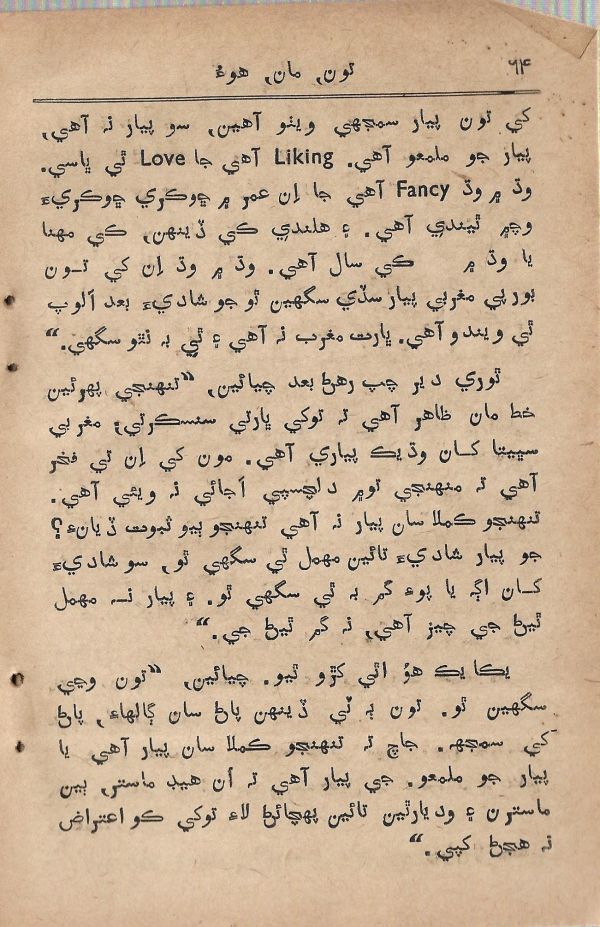 تون, مان, هوءُ ٦۴
کي تون پيار سمجهي ويٺو آهين, سو پيار نہ آهي,
پيار جو ملمعو آهي. Liking آهي جا Love ٿي ڀاسي.
وڌ ۾ وڌ Fancy آهي جا اِن عمر ۾ ڇوڪري ڇوڪريءَ
وچ۾ ٿيندي آهي. ۽ هلندي ڪي ڏينهن, ڪي مهنا
يا وڌ ۾ ڪي سال آهي. وڌ ۾ وڌ اِن کي تون
يورپي مغربي پيار سڏي سگهين ٿو جو شاديءَ بعد اَلوپ
ٿي ويندو آهي. ڀارت مغرب نہ آهي ۽ ٿي بہ نٿو سگهي.“
ٿوري دير چپ رهڻ بعد چيائين, ”تنهنجي پهرئين
خط مان ظاهر آهي تہ توکي ڀارتي سنسڪرتي, مغربي
سڀيتا کان وڌيڪ پياري آهي. مون کي اِن تي فخر
آهي تہ منهنجي تو۾ دلچسپي اَجائي نہ ويئي آهي.
تنهنجو ڪملا سان پيار نہ آهي تنهنجو ٻيو ثبوت ڏيانءِ؟
جو پيار شاديءَ تائين مهمل ٿي سگهي ٿو, سو شاديءَ
کان اڳہ يا پوءِ گم بہ ٿي سگهي ٿو. ۽ پيار نہ مهمل
ٿيڻ جي چيز آهي, نہ گم ٿيڻ جي.“
يڪايڪ هوُ اٿي کڙو ٿيو. چيائين, ”تون وڃي
سگهين ٿو. تون بہ ٽي ڏينهن پاڻ سان ڳالهاءِ, پاڻ
کي سمجهہ. جاچ تہ تنهنجو ڪملا سان پيار آهي يا
پيار جو ملمعو. جي پيار آهي تہ اُن هيڊ ماستر, ٻين
ماسترن ۽ وديارٿين تائين پهچائڻ لاءِ توکي ڪو اعتراض
نہ هجڻ کپي.“